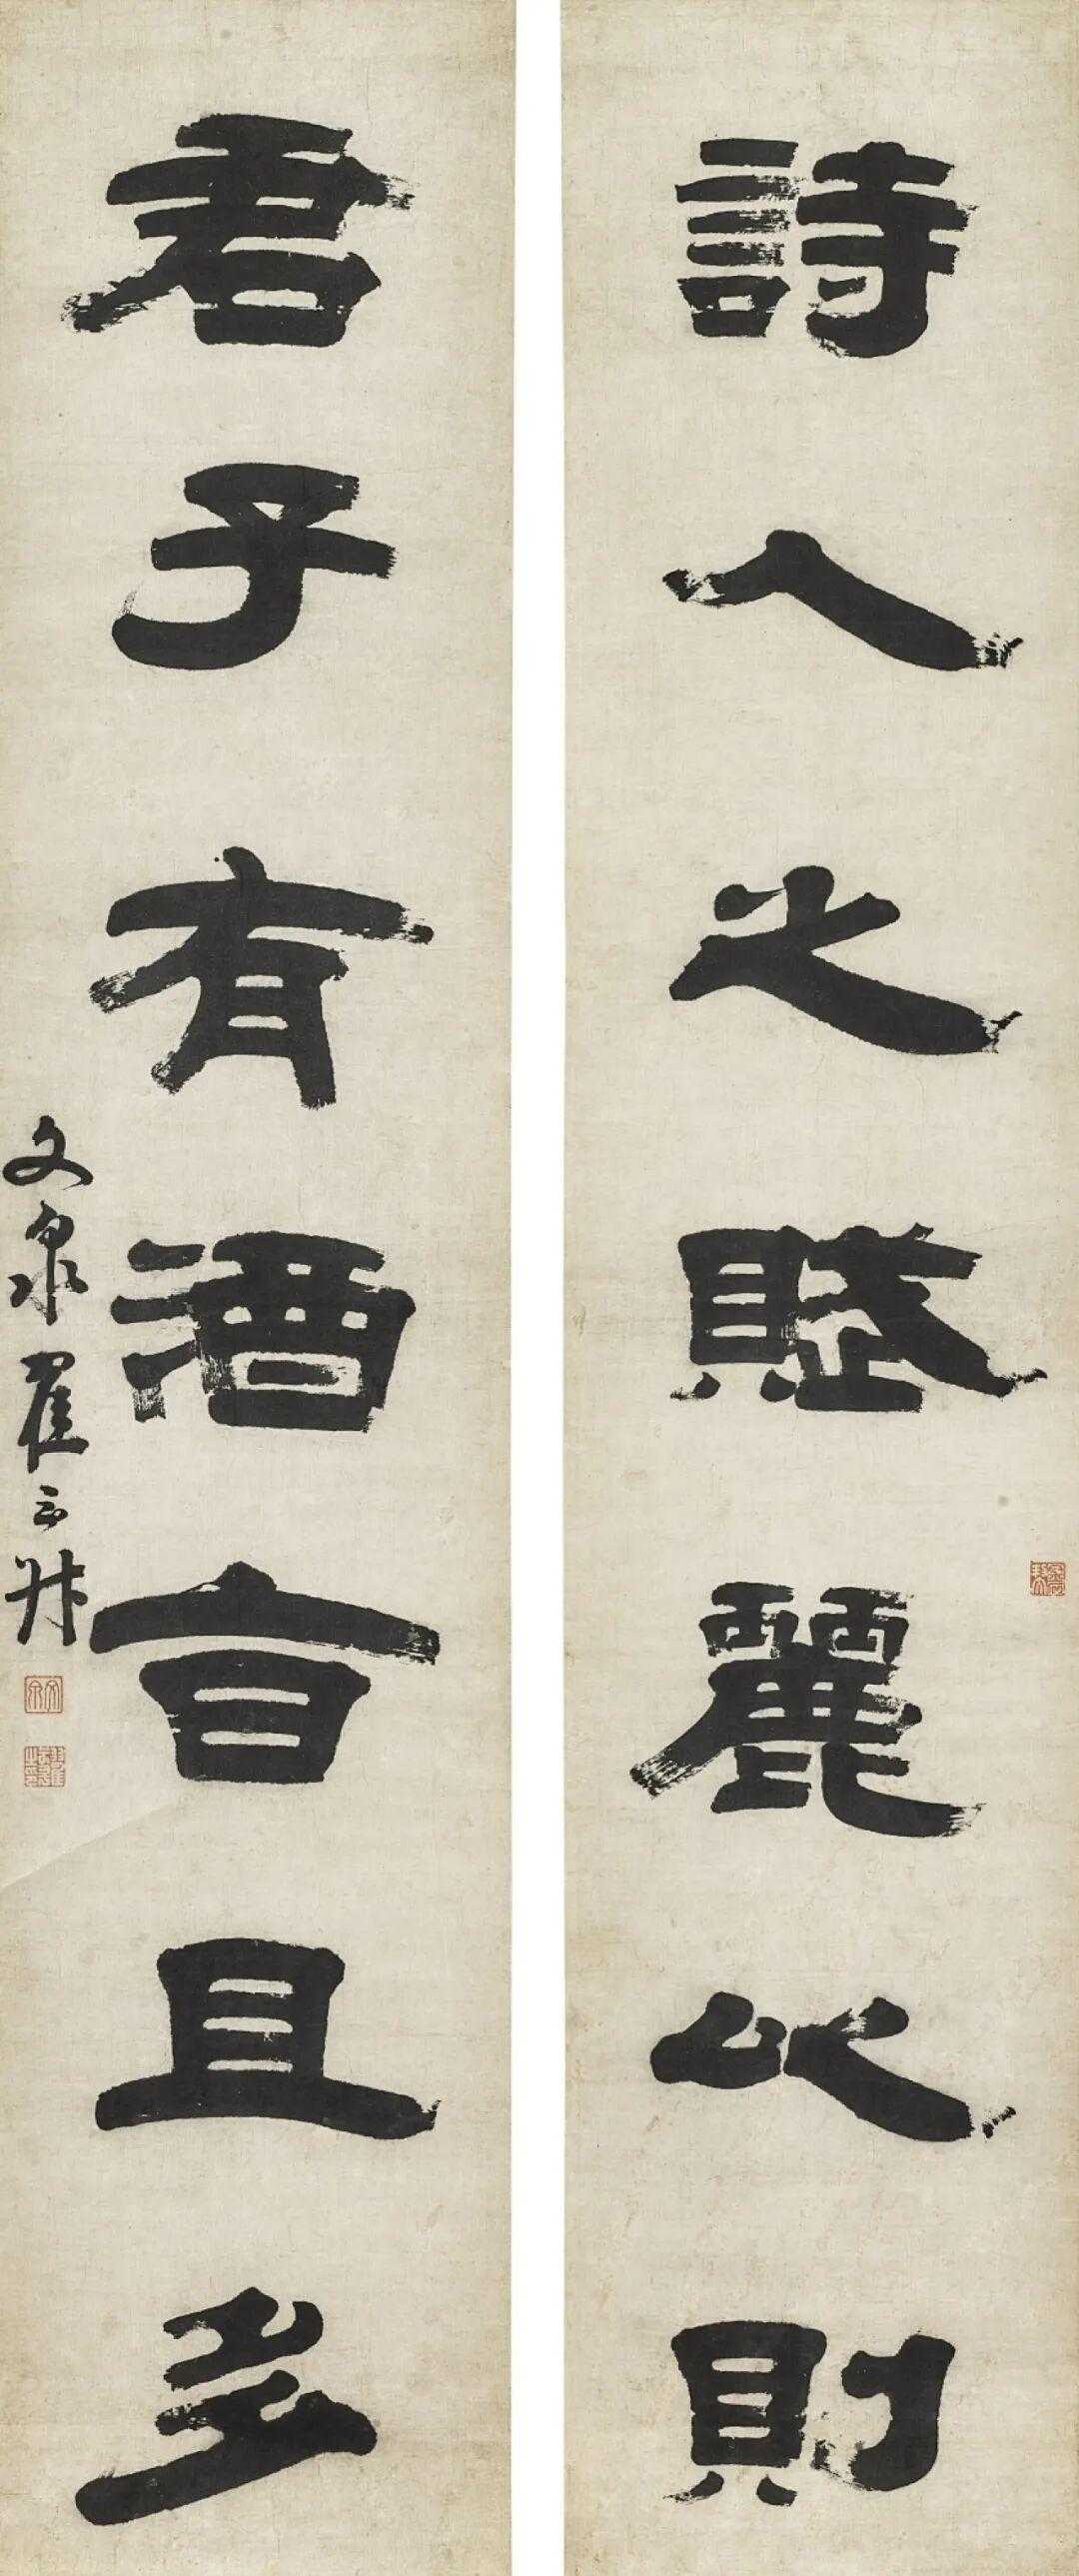 詩人之賦麗以則
君子有酒旨且多
文泉翟云升